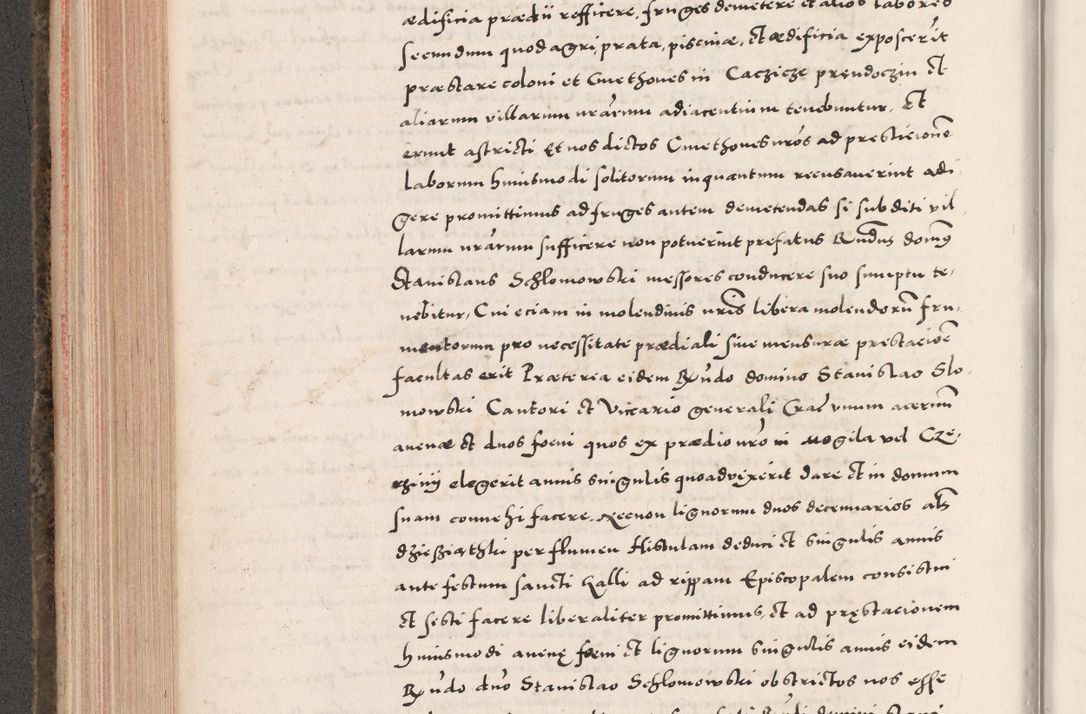 ædificia prædii refficere, fruges demetere et alios labores
secundum quod agri, prata, piscinæ, et ædificia exposcerĩt
præstare coloni et Cmethones in Caczicze prendoczin et
aliarum villarum vrãrum adiacentium tenebuntur, Et
erunt astricti Et nos dictos Cmethones vrõs ad prestacionẽ
laborum huiusmodi solitorum inquantum recusaverint adi
gere promittimus ad fruges autem demetendas si subditi vil
larum vrãrum sufficere non potuerint prefatus Rñdus domĩ9
Stanislaus Schlomowski messores conducere suo sumptu te,
nebitur, Cui eciam in molendinis vrĩs libera molendorũ fru,
mentorum pro necessitate prædiali sive mensuræ prestacioẽ
facultas erit Præterea eidem Rñdo domino Stanislao Slo,
mowski Cantori et Vicario generali Craĉ vnum acervũ
avenæ et duos foeni quos ex prædio vrõ in Mogila vel Cze,
rzinij elegerit annis singulis quoadvixerit dare et in domum
suam convehi facere. Necnon lignorum duos decennarios als
dziesziąthki per flumen Histulam deduci et singulis annis
ante festum sancti Galli ad rippam Episcopalem consistui
et sisti facere liberaliter promittimus, et ad pręstacionem
huiusmodi avenę foeni et lignorum singulis annis eidem
Rñdo dnõ Stanislao Schlomowski obstrictos nos esse